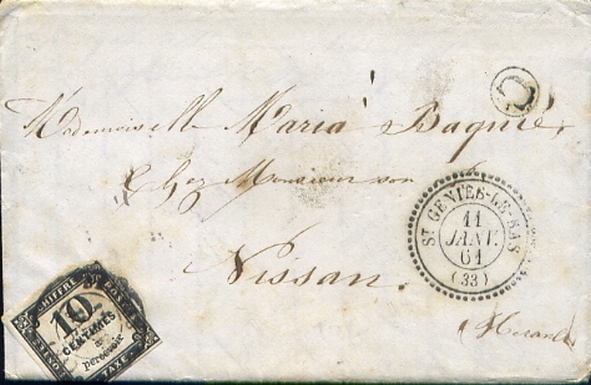 Mademoiselle Maria Baquié
Chez Monsieur son
Nissan.
Hérault
ST GENIÈS-LE-BAS
11
JANV.
61
(33)
CHIFFRE
10
CENTIMES
à
percevoir
TAXE